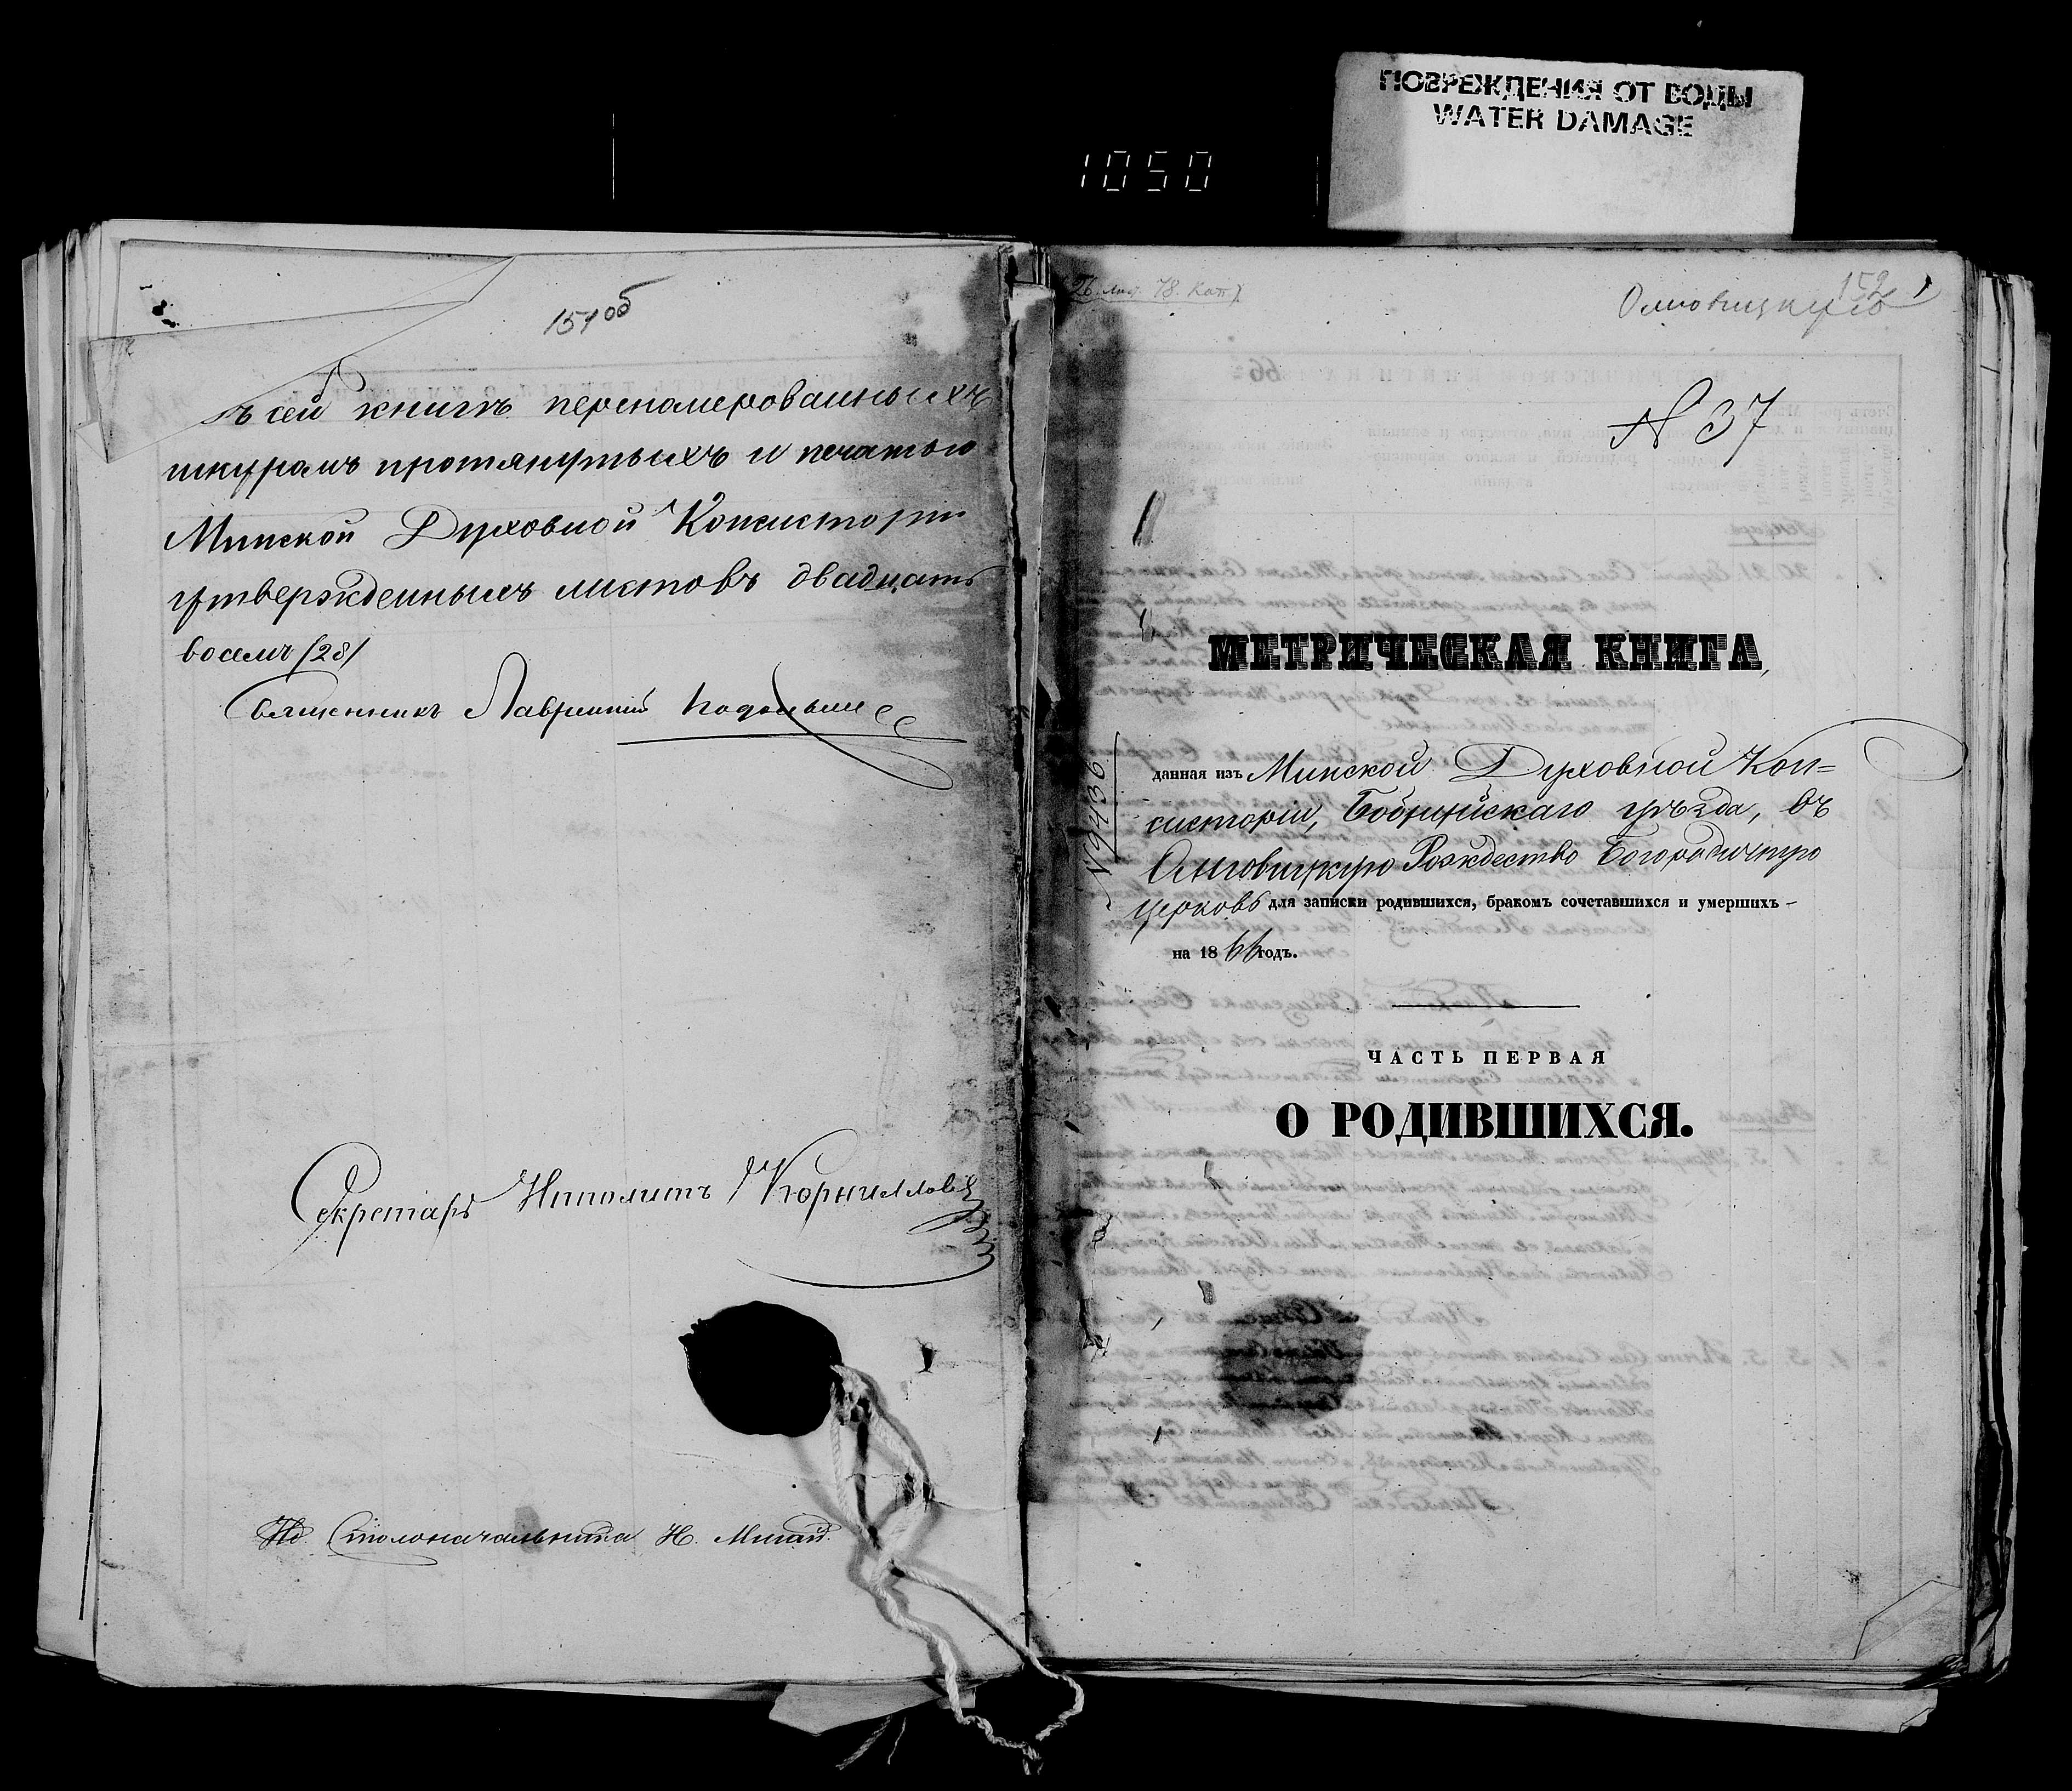 ПОВРЕЖДЕНИЯ ОТ ВОДЫ
WATER DAMAGE
1050
151об
ъ сей книгѣ перенумерованныхъ
шнуромъ протянутыхъ и печатью
Минской Духовной Консисторіи
утвержденныхъ листовъ двадцать
восемь /28/
Священникъ Лаврентій
Секретарь Иполитъ Корнилловъ
Столоначальника Н.
152
№ 37
МЕТРИЧЕСКАЯ КНИГА,
данная изъ Минской Духовной Кон=
систоріи, Бобруйскаго уѣзда, въ
Рождество Богородичную
церковь для записки родившихся, бракомъ сочетавшихся и умершихъ –
на 1866 годъ.
№ 9436
ЧАСТЬ ПЕРВАЯ
О РОДИВШИХСЯ.